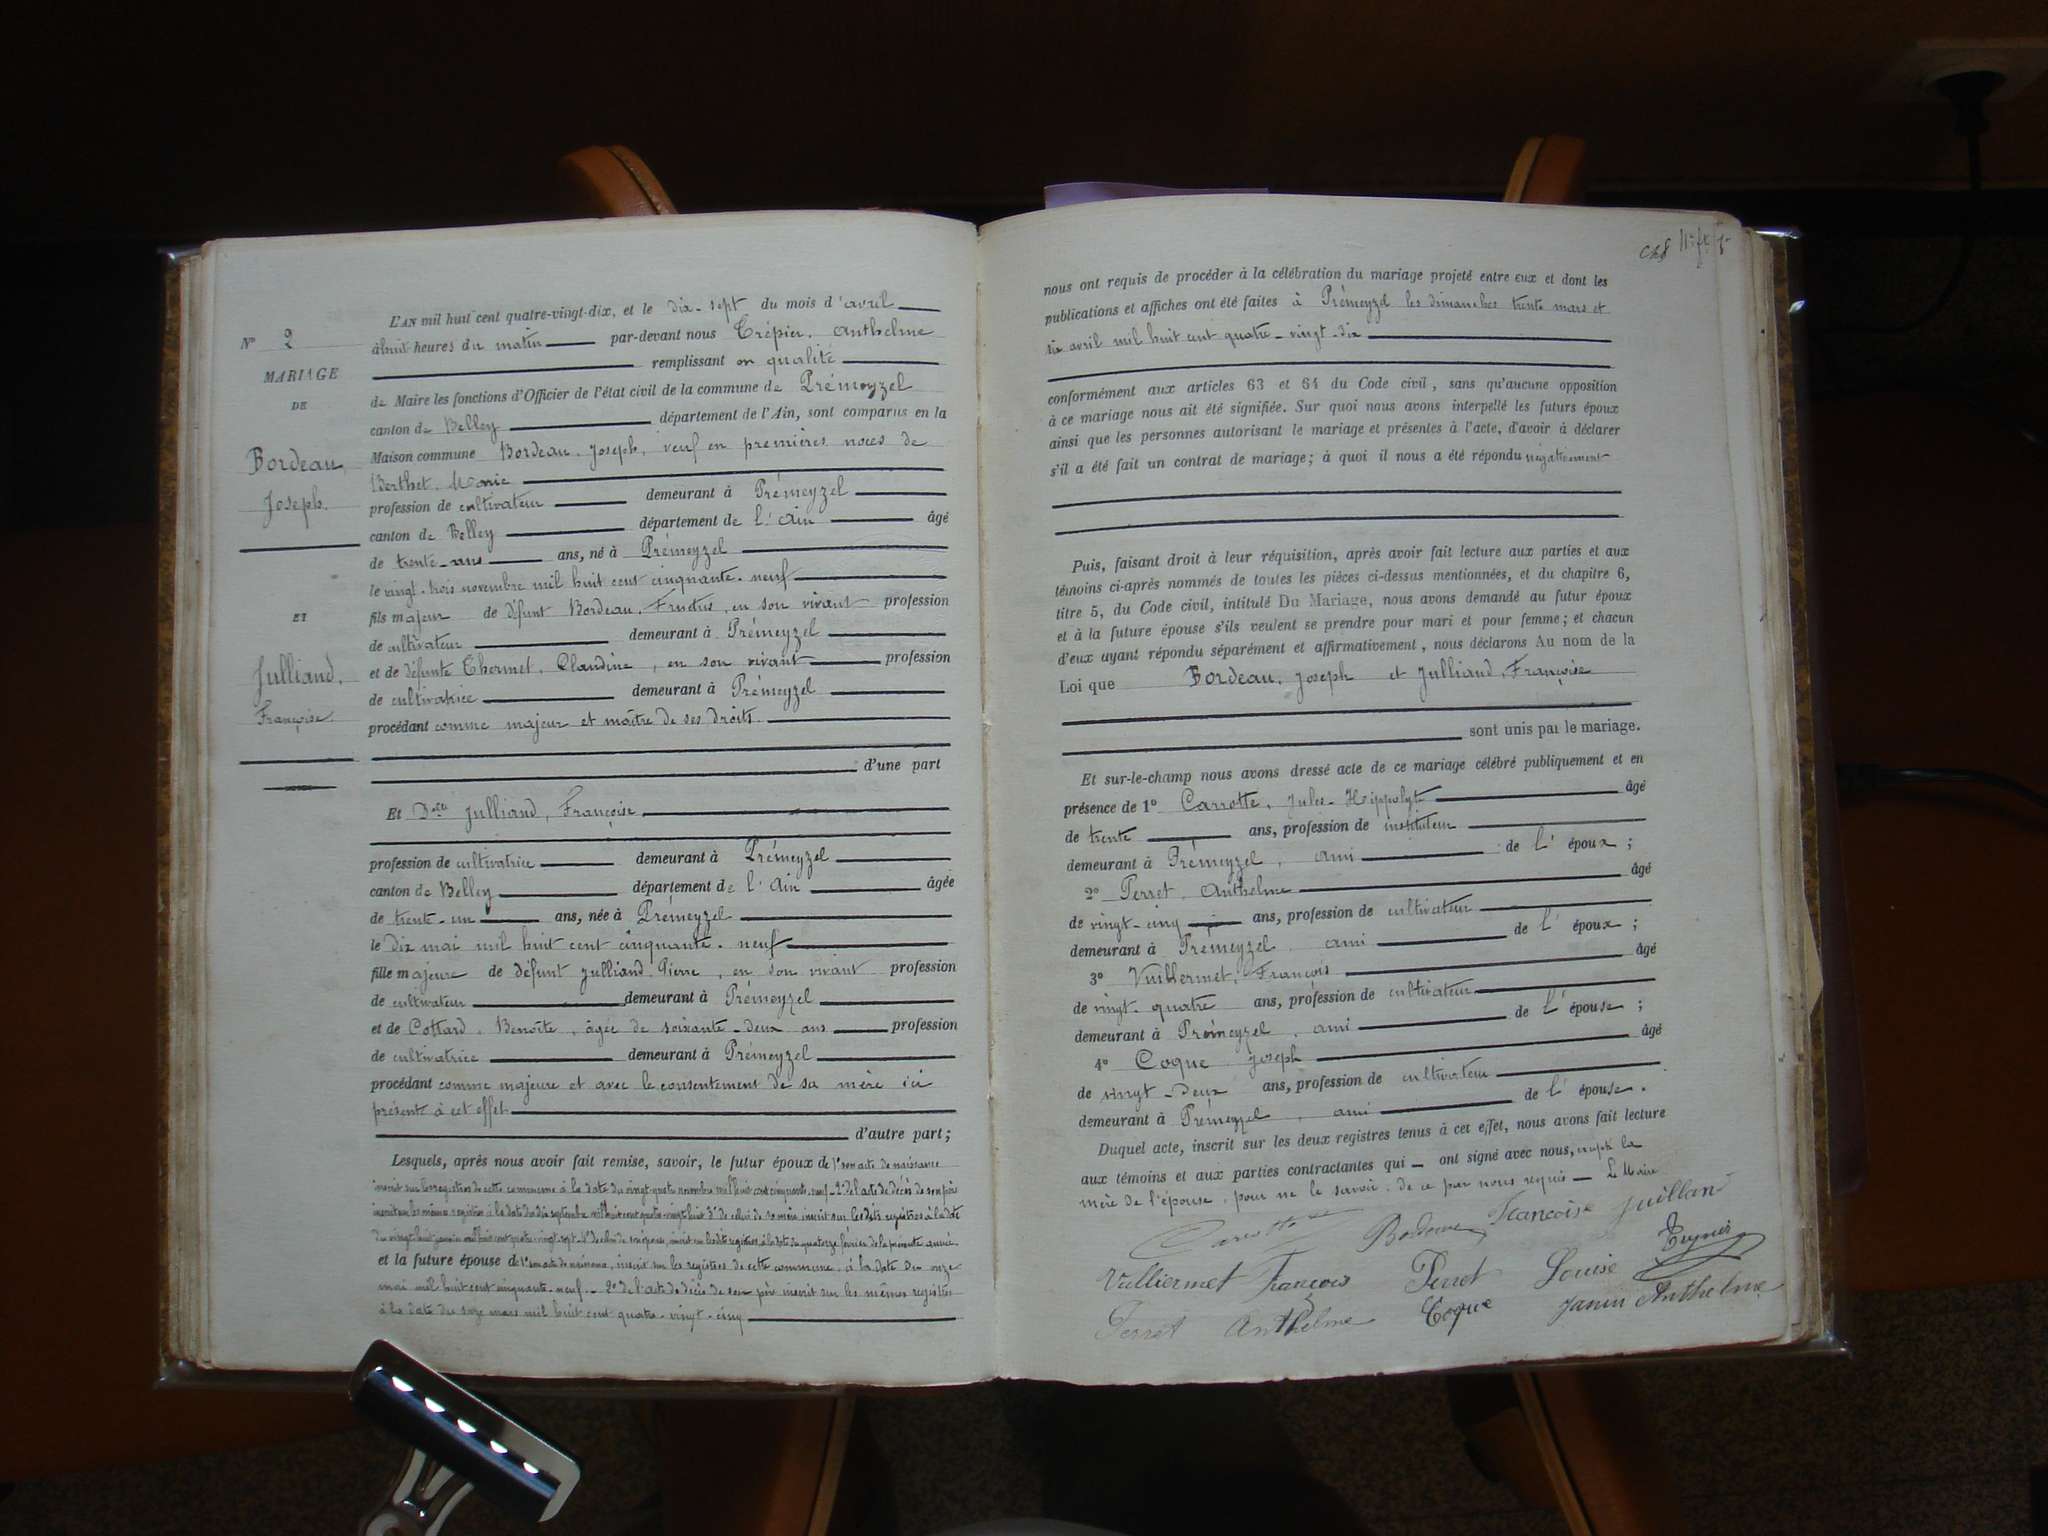 N° 2
MARIAGE
DE
Bordeau,
Joseph.
ET
Julliand,
Françoise.
L'AN mil huit cent quatre-vingt-dix, et le dix-sept du mois d'avril
à huit heures du matin par-devant nous Trépier, Anthelme
remplissant en qualité
de Maire les fonctions d'Officier de l'état civil de la commune de Prémeyzel
canton de Belley département de l'Ain, sont comparus en la
Maison commune Bordeau, Joseph, veuf en premières noces de
Berthet, Marie
profession de cultivateur demeurant à Prémeyzel
canton de Belley département de l'Ain âgé
de trente-ans ans, né à Prémeyzel
le vingt-trois novembre mil huit cent cinquante-neuf
fils majeur de défunt Bordeau, Fructus, en son vivant profession
de cultivateur demeurant à Prémeyzel
et de défunte Thermet, Claudine, en son vivant profession
de cultivatrice demeurant à Prémeyzel
procédant comme majeur et maître de ses droits.
d'une part
Et Delle Julliand, Françoise
profession de cultivatrice demeurant à Prémeyzel
canton de Belley département de l'Ain âgée
de trente-un ans, née à Prémeyzel
le dix mai mil huit cent cinquante-neuf
fille majeure de défunt Julliand, Pierre, en son vivant profession
de cultivateur demeurant à Prémeyzel
et de Cottard, Benoîte, âgée de soixante-deux ans profession
de cultivatrice demeurant à Prémeyzel
procédant comme majeure et avec le consentement de sa mère ici
présente à cet effet
d'autre part;
Lesquels, après nous avoir fait remise, savoir, le futur époux de 1° son acte de naissance
inscrit sur les registres de cette commune à la date du vingt-quatre novembre mil huit cent cinquante-neuf - 2° de l'acte de décès de son père
inscrit sur les mêmes registres à la date du dix septembre mil huit cent quatre-vingt-huit 3° de celui de sa mère inscrit sur lesdits registres à la date
du vingt-huit janvier mil huit cent quatre-vingt-sept - 4° de celui de son épouse, inscrit sur lesdits registres à la date du quatorze février de la présente année.
et la future épouse de 1° son acte de naissance, inscrit sur les registres de cette commune, à la date du onze
mai mil huit cent cinquante-neuf - 2° de l'acte de décès de son père inscrit sur les mêmes registres
à la date du seize mars mil huit cent quatre-vingt-cinq
nous ont requis de procéder à la célébration du mariage projeté entre eux et dont les
publications et affiches ont été faites à Prémeyzel les dimanches trente mars et
six avril mil huit cent quatre-vingt-dix
conformément aux articles 63 et 64 du Code civil, sans qu'aucune opposition
à ce mariage nous ait été signifiée. Sur quoi nous avons interpellé les futurs époux
ainsi que les personnes autorisant le mariage et présentes à l'acte, d'avoir à déclarer
s'il a été fait un contrat de mariage; à quoi il nous a été répondu négativement
Puis, faisant droit à leur réquisition, après avoir fait lecture aux parties et aux
témoins ci-après nommés de toutes les pièces ci-dessus mentionnées, et du chapitre 6,
titre 5, du Code civil, intitulé Du Mariage, nous avons demandé au futur époux
et à la future épouse s'ils veulent se prendre pour mari et pour femme; et chacun
d'eux ayant répondu séparément et affirmativement, nous déclarons Au nom de la
Loi que Bordeau, Joseph et Julliand, Françoise
sont unis par le mariage.
Et sur-le-champ nous avons dressé acte de ce mariage célébré publiquement et en
présence de 1° Carrotte, Jules-Hippolyte âgé
de trente ans, profession de instituteur
demeurant à Prémeyzel, ami de l'époux;
2° Perret, Anthelme âgé
de vingt-cinq ans, profession de cultivateur
demeurant à Prémeyzel, ami de l'époux;
3° Vuillermet, François âgé
de vingt-quatre ans, profession de cultivateur
demeurant à Prémeyzel, ami de l'épouse;
4° Coque Joseph âgé
de vingt-deux ans, profession de cultivateur
demeurant à Prémeyzel, ami de l'épouse.
Duquel acte, inscrit sur les deux registres tenus à cet effet, nous avons fait lecture
aux témoins et aux parties contractantes qui ont signé avec nous, excepté la
mère de l'épouse, pour ne le savoir, de ce par nous requis - Le Maire
Françoise Juillan
Vulliermet François Perret Louise
Perret Anthelme Coque Janin Anthelme